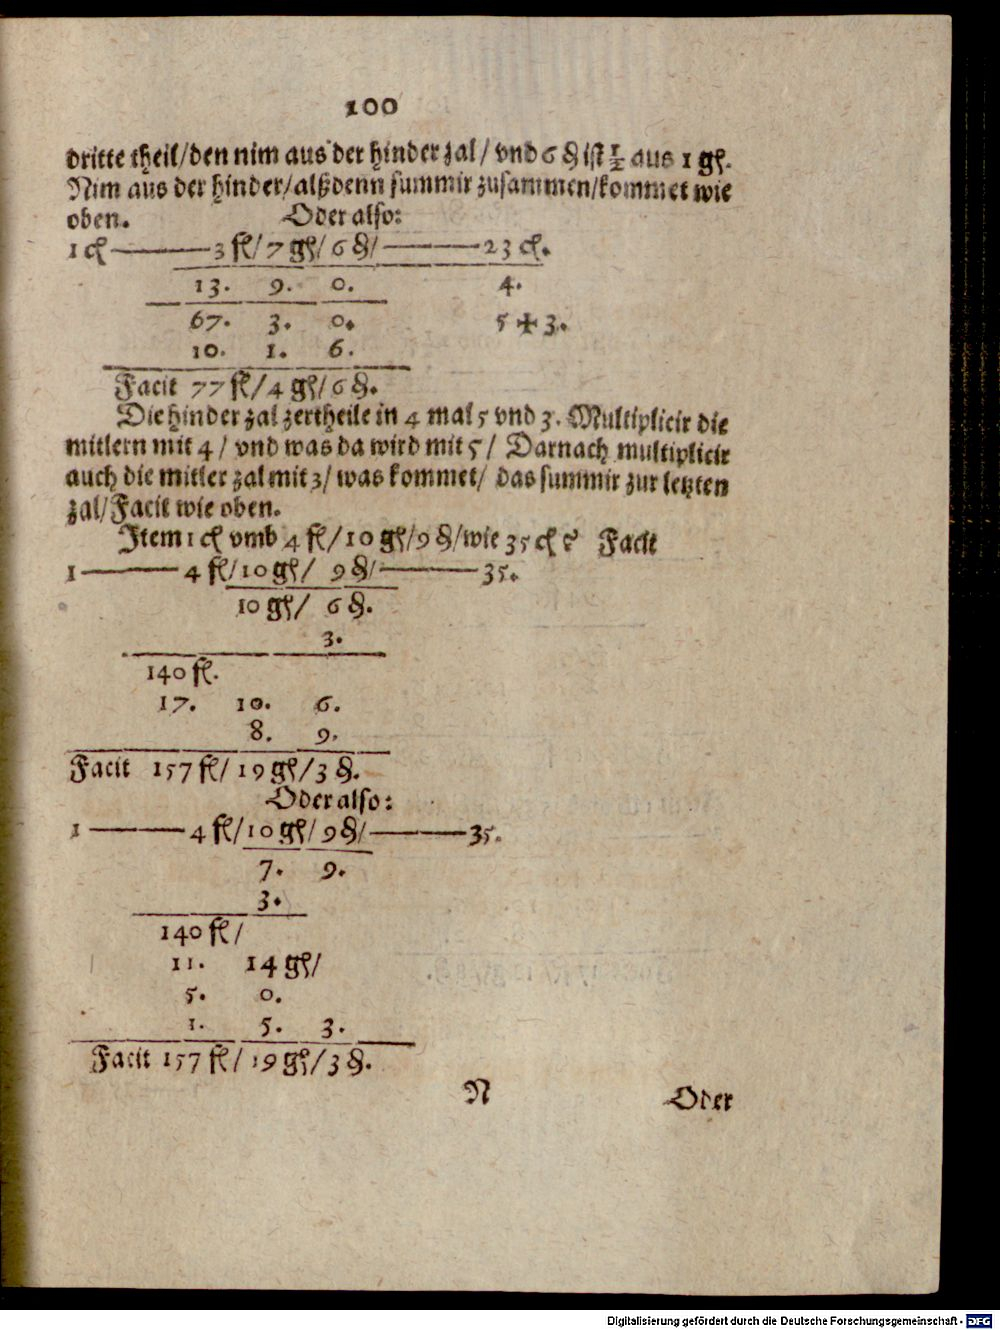 100
dritte theil/den nim aus der hinder zal/ vnd 6 ₰ ist ½ aus 1 gl.
Nim aus der hinder/alßdenn summir zusammen/kommet wie
oben. Oder also:
1 cl ——— 3 fl/ 7 gl/ 6 ₰/ ——— 23 cl.
13. 9. 0. 4.
67. 3. 0. 5 ✠ 3.
10. 1. 6.
Facit 77 fl/ 4 gl/ 6 ₰.
Die hinder zal zertheile in 4 mal 5 vnd 3. Multiplicir die
mitlern mit 4 / vnd was da wird mit 5 / Darnach multiplicir
auch die mitler zal mit 3/ was kommet/ das summir zur letzten
zal/ Facit wie oben.
Item 1 cl vmb 4 fl/ 10 gl/ 9 ₰/wie 35 cl? Facit
1 ——— 4 fl/ 10 gl/ 9 ₰/ ——— 35.
10 gl/ 6 ₰.
3.
140 fl.
17. 10. 6.
8. 9.
Facit 157 fl/ 19 gl/ 3 ₰.
Oder also:
1 ——— 4 fl/ 10 gl/ 9 ₰/ ——— 35.
7. 9.
3.
140 fl/
11. 14 gl/
5. 0.
1. 5. 3.
Facit 157 fl/ 19 gl/ 3 ₰.
N Oder
Digitalisierung gefördert durch die Deutsche Forschungsgemeinschaft - DFG